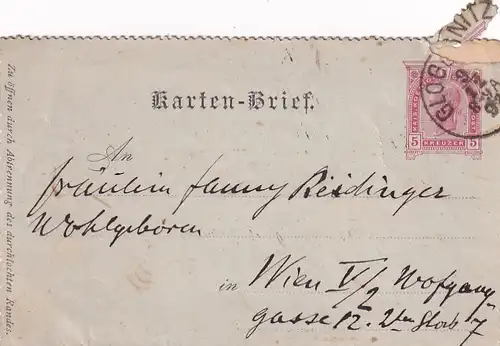 Karten-Brief.
GLOGGNITZ
5 KREUZER 5
An
Fräulein Fanny Reidinger
Wohlgeboren
in Wien V/2 Wofgang
gasse 12. 2ten Stock
7
Zu öffnen durch Abtrennung des durchlochten Randes.